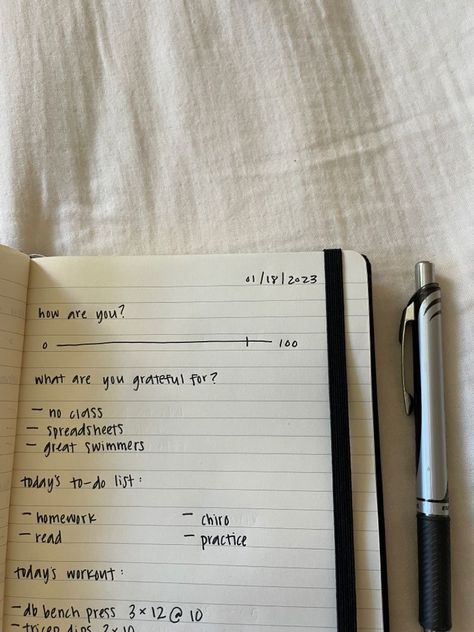 01/18/2023
how are you?
0 100
what are you grateful for?
- no class
- spreadsheets
- great swimmers
today's to-do list:
- homework - chiro
- read - practice
today's workout:
- db bench press 3x12 @ 10
- tricep dips 3x10